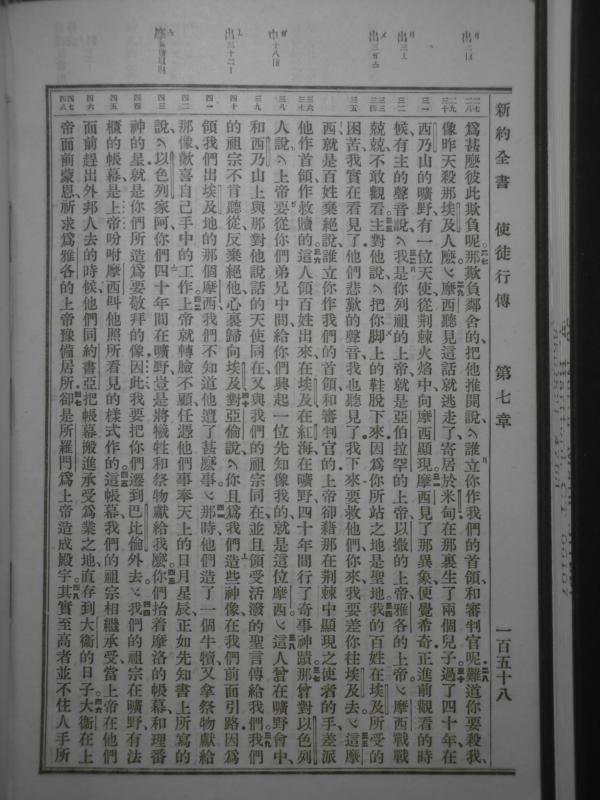 新約全書　使徒行傳　第七章　一百五十八
爲甚麽彼此欺負呢那欺負鄰舍的把他推開說誰立你作我們的首領和審判官呢難道你要殺我
像昨天殺那埃及人麽摩西聽見這話就逃走了寄居於米甸在那裏生了兩個兒子過了四十年在
西乃山的曠野有一位天使從荆棘火焰中向摩西顯現摩西見了那異象便覺希奇正進前觀看的時
候有主的聲音說我是你列祖的上帝就是亞伯拉罕的上帝以撒的上帝雅各的上帝摩西戰戰
兢兢不敢觀看主對他說把你脚上的鞋脫下來因爲你所站之地是聖地我的百姓在埃及所受的
困苦我實在看見了他們悲歎的聲音我也聽見了我下來要救他們你來我要差你往埃及去這摩
西就是百姓棄絕說誰立你作我們的首領和審判官的上帝卻藉那在荆棘中顯現之使者的手差派
他作首領作救贖的這人領百姓出來在埃及在紅海在曠野四十年間行了奇事神蹟那曾對以色列
人說上帝要從你們弟兄中間給你們興起一位先知像我的就是這位摩西這人曾在曠野會中
和西乃山上與那對他說話的天使同在又與我們的祖宗同在並且領受活潑的聖言傳給我們我們
的祖宗不肯聽從反棄絕他心裏歸向埃及對亞倫說你且爲我們造些神像在我們前面引路因爲
領我們出埃及地的那個摩西我們不知道他遭了甚麽事那時他們造了一個牛犢又拿祭物獻給
那像歡喜自己手中的工作上帝就轉臉不顧任憑他們事奉天上的日月星辰正如先知書上所寫的
說以色列家阿你們四十年間在曠野豈是將犧牲和祭物獻給我麽你們抬着摩洛的帳幕和理番
神的星就是你們所造爲要敬拜的像因此我要把你們遷到巴比倫外去我們的祖宗在曠野有法
櫃的帳幕是上帝吩咐摩西叫他照所看見的樣式作的這帳幕我們的祖宗相繼承受當上帝在他們
面前趕出外邦人去的時候他們同約書亞把帳幕搬進承受爲業之地直存到大衞的日子大衞在上
帝面前蒙恩祈求爲雅各的上帝豫備居所卻是所羅門爲上帝造成殿宇其實至高者並不住人手所